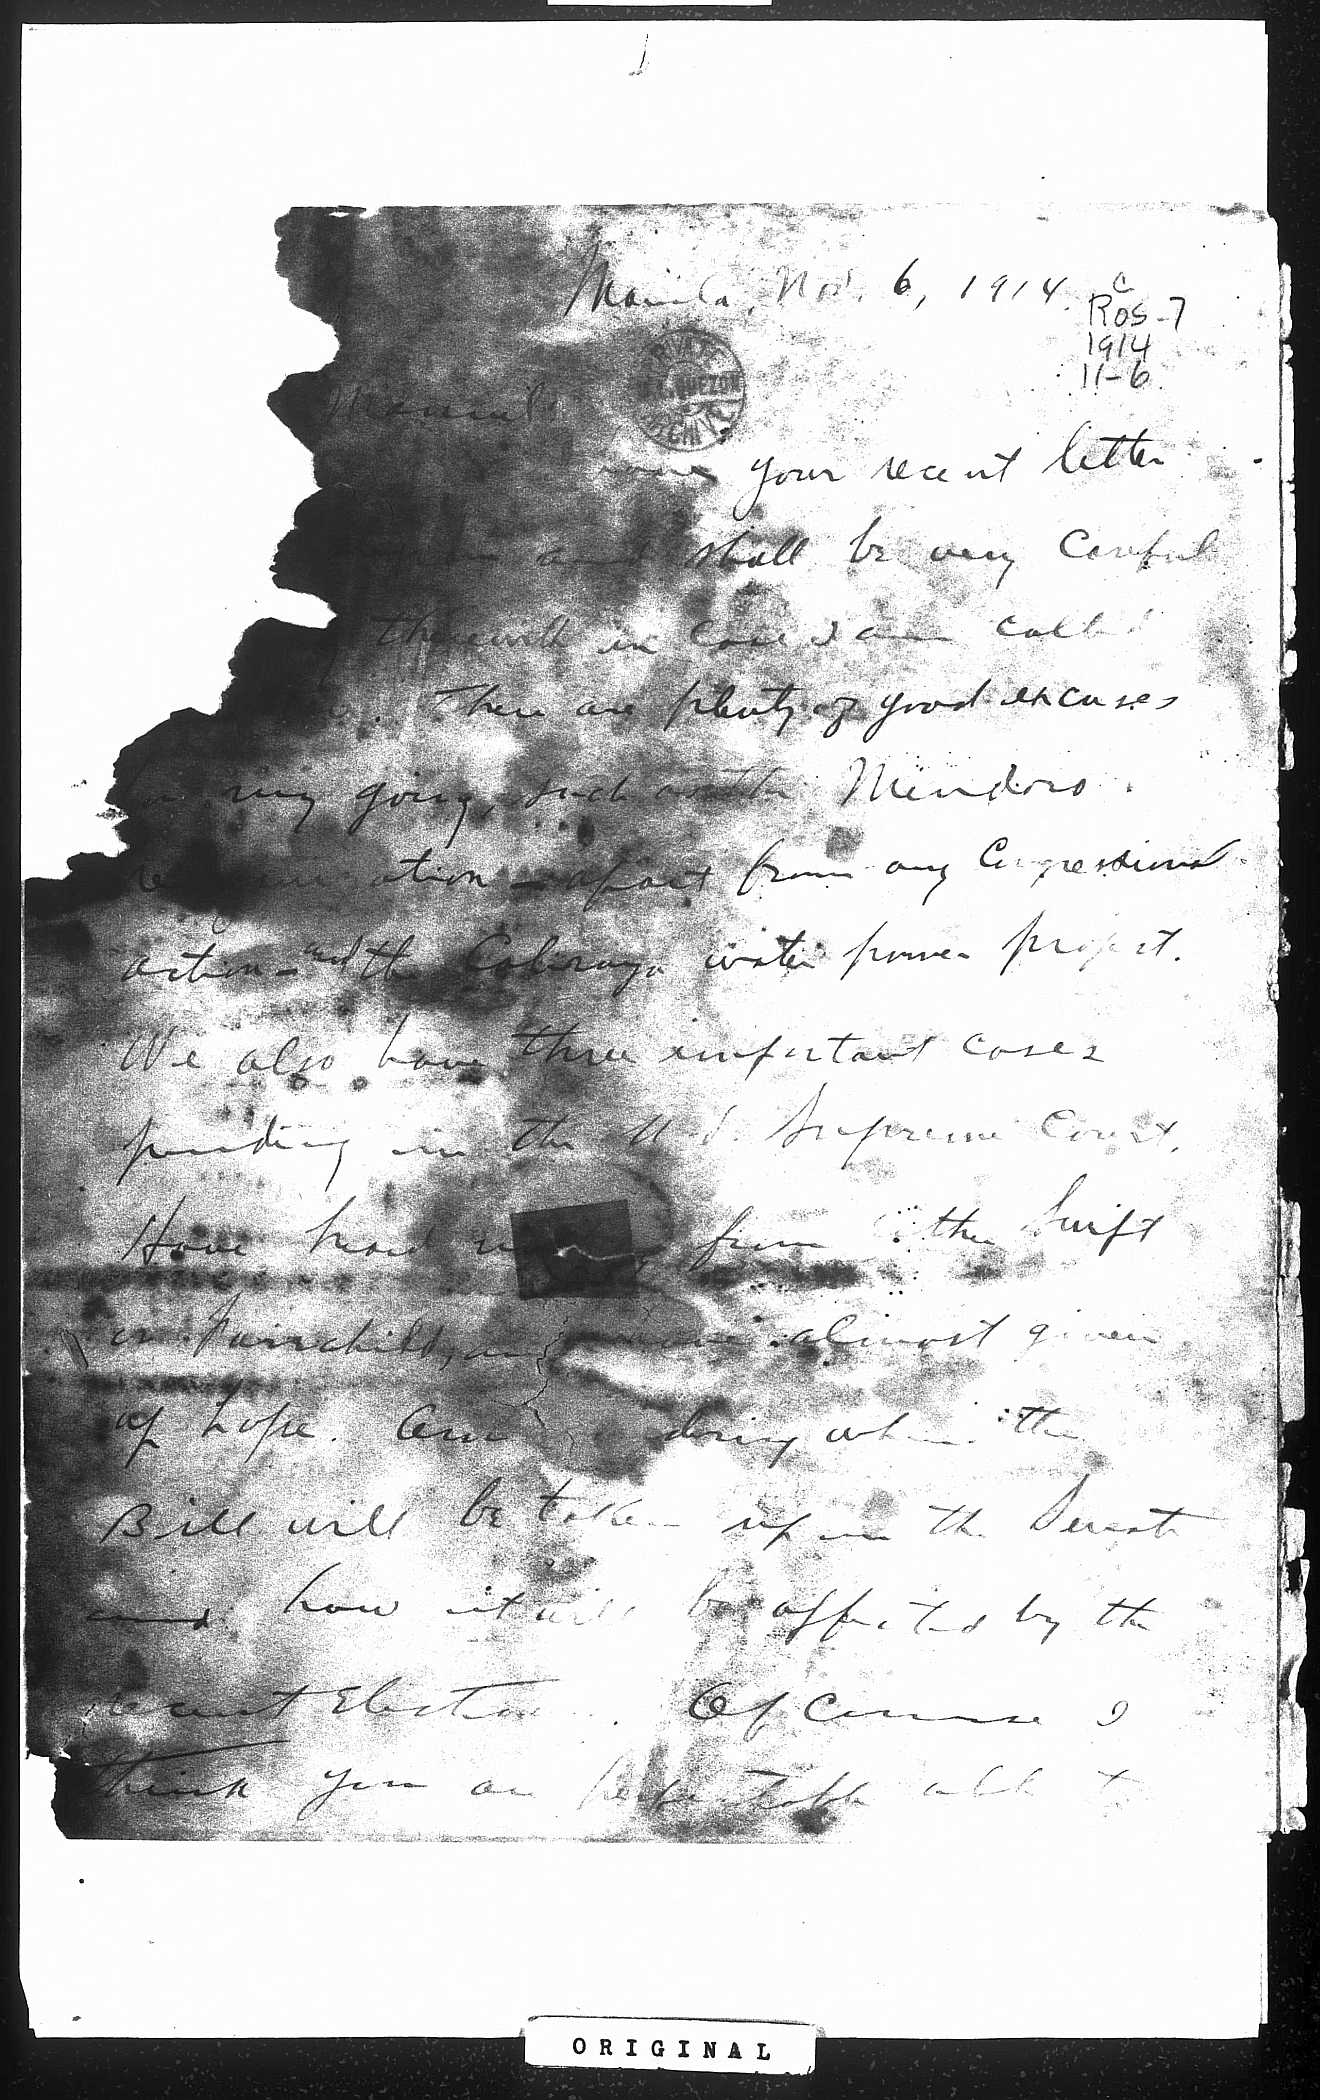 Manila, Nov. 6, 1914.
C
ROS-7
1914
11-6
PRIVATE
M.L. QUEZON
ARCHIVE
Manuel
your recent letter
and shall be very careful
therewith in case I am called
There are plenty of good excuses
for my going, such as the Mindoro
apart from any Congressional
action - and the Caliraya water power project.
We also have three important cases
pending in the U.S. Supreme Court.
Have heard from either Swift
or Fairchild, and have almost given
up hope. Am when the
Bill will be taken up in the Senate
and how it will be affected by the
recent Election. Of course I
think you are able to
ORIGINAL